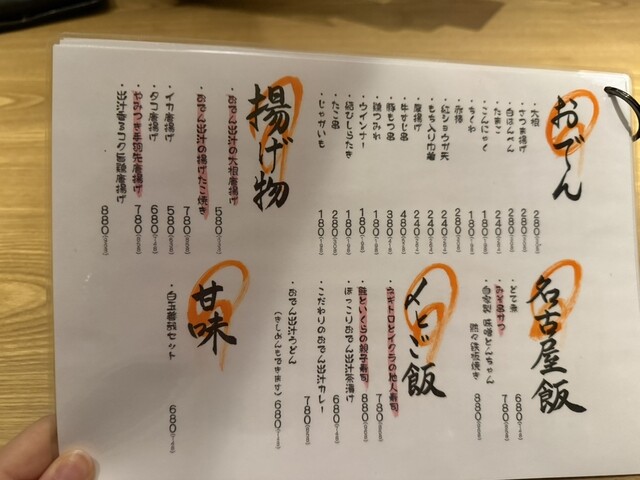 おでん
大根 280
さつま揚げ 280
白はんぺん 280
たまご 240
こんにゃく 180
ちくわ 180
赤棒 280
紅ショウガ天 240
もち入り巾着 240
厚揚げ 240
牛すじ串 480
豚もつ串 380
鶏つみれ 180
ウインナー 180
結びしらたき 180
たこ串 280
じゃがいも 180
揚げ物
おでん出汁の大根唐揚げ 580
おでん出汁の揚げたこ焼き 780
イカ唐揚げ 580
タコ唐揚げ 680
やみつき手羽先唐揚げ 780
出汁香るコク旨鶏唐揚げ 880
名古屋飯
どて煮 680
みそ串かつ 780
自家製 味噌とんちゃん
鉄板焼き 880
〆とご飯
ネギトロとイクラの他人寿司 780
鮭といくらの親子寿司 880
ほっこりおでん出汁茶漬け 680
こだわりのおでん出汁カレー 780
おでん出汁うどん
(きしめんもできます) 680
甘味
白玉善哉セット 680